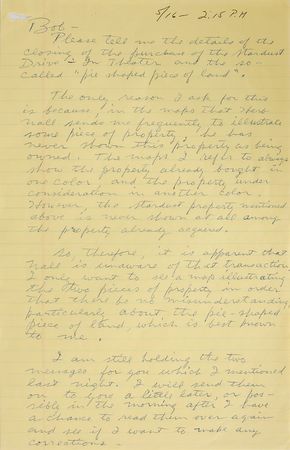 5/16 - 2:15 P.M
Bob -
Please tell me the details of the
closing of the purchase of the Stardust
Drive In Theater and the so-
called "pie shaped piece of land".
The only reason I ask for this
is because in the maps that
Hall sends me frequently to illustrate
some piece of property, he has
never shown this property as being
owned. The maps I refer to always
show the property already bought in
one color, and the property under
consideration in another color.
However, the Stardust property mentioned
above is never shown at all among
the property already acquired.
So, therefore, it is apparent that
Hall is unaware of that transaction
I only want to see a map illustrating
the two pieces of property in order
that there be no misunderstanding
particularly about the pie-shaped
piece of land, which is best known
to me.
I am still holding the two
messages for you which I mentioned
last night. I will send them
on to you a little later, or pos-
sible in the morning after I have
a chance to read them over again
and see if I want to make any
corrections -